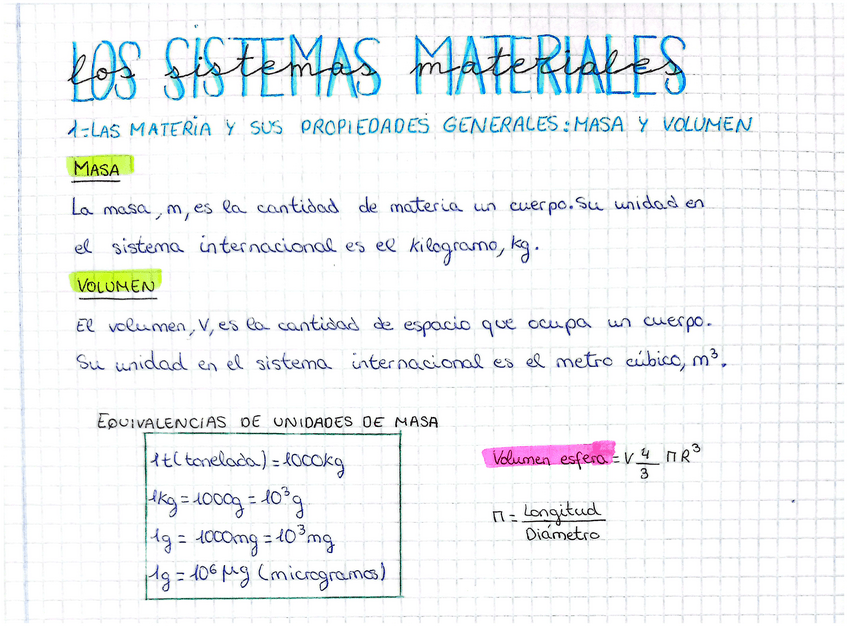 LOS SISTEMAS MATERIALES
los sistemas materiales
1=LAS MATERIA Y SUS PROPIEDADES GENERALES: MASA Y VOLUMEN
MASA
La masa, m, es la cantidad de materia un cuerpo. Su unidad en
el sistema internacional es el kilogramo, kg.
VOLUMEN
El volumen, V, es la cantidad de espacio que ocupa un cuerpo.
Su unidad en el sistema internacional es el metro cúbico, m³.
EQUIVALENCIAS DE UNIDADES DE MASA
1t (tonelada) = 1000kg
1kg = 1000g = 10³g
1g = 1000mg = 10³mg
1g = 10⁶ µg (microgramos)
Volumen esfera = V 4/3 π R³
π = Longitud
Diámetro